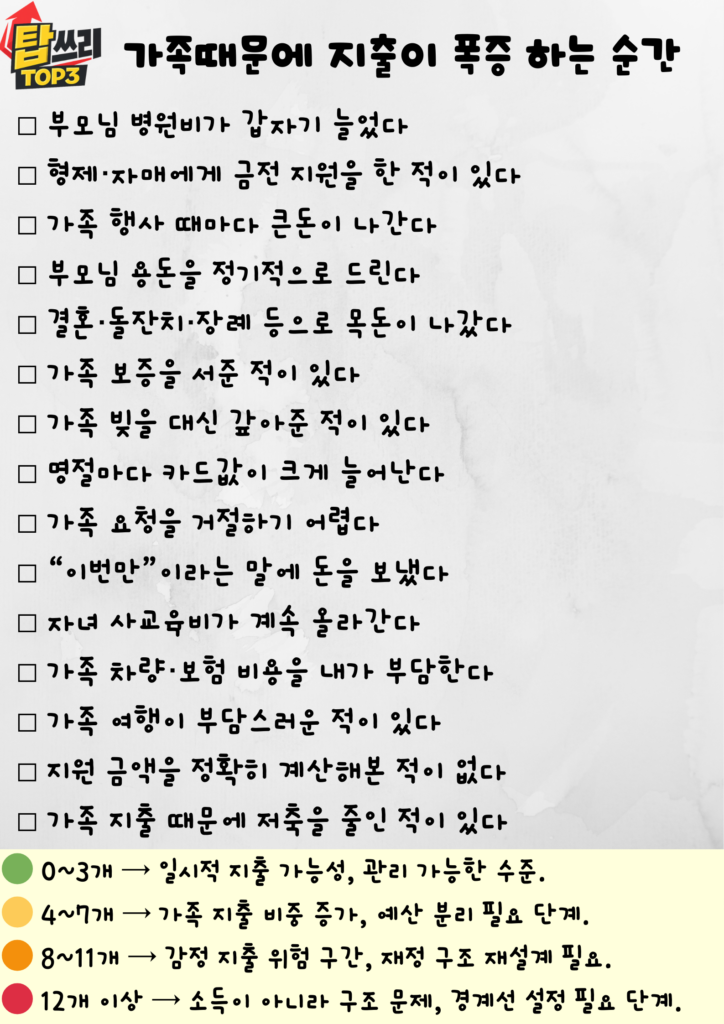 탑쓰리
TOP3
가족때문에 지출이 폭증 하는 순간
□ 부모님 병원비가 갑자기 늘었다
□ 형제·자매에게 금전 지원을 한 적이 있다
□ 가족 행사 때마다 큰돈이 나간다
□ 부모님 용돈을 정기적으로 드린다
□ 결혼·돌잔치·장례 등으로 목돈이 나갔다
□ 가족 보증을 서준 적이 있다
□ 가족 빚을 대신 갚아준 적이 있다
□ 명절마다 카드값이 크게 늘어난다
□ 가족 요청을 거절하기 어렵다
□ “이번만”이라는 말에 돈을 보냈다
□ 자녀 사교육비가 계속 올라간다
□ 가족 차량·보험 비용을 내가 부담한다
□ 가족 여행이 부담스러운 적이 있다
□ 지원 금액을 정확히 계산해본 적이 없다
□ 가족 지출 때문에 저축을 줄인 적이 있다
0~3개 → 일시적 지출 가능성, 관리 가능한 수준.
4~7개 → 가족 지출 비중 증가, 예산 분리 필요 단계.
8~11개 → 감정 지출 위험 구간, 재정 구조 재설계 필요.
12개 이상 → 소득이 아니라 구조 문제, 경계선 설정 필요 단계.